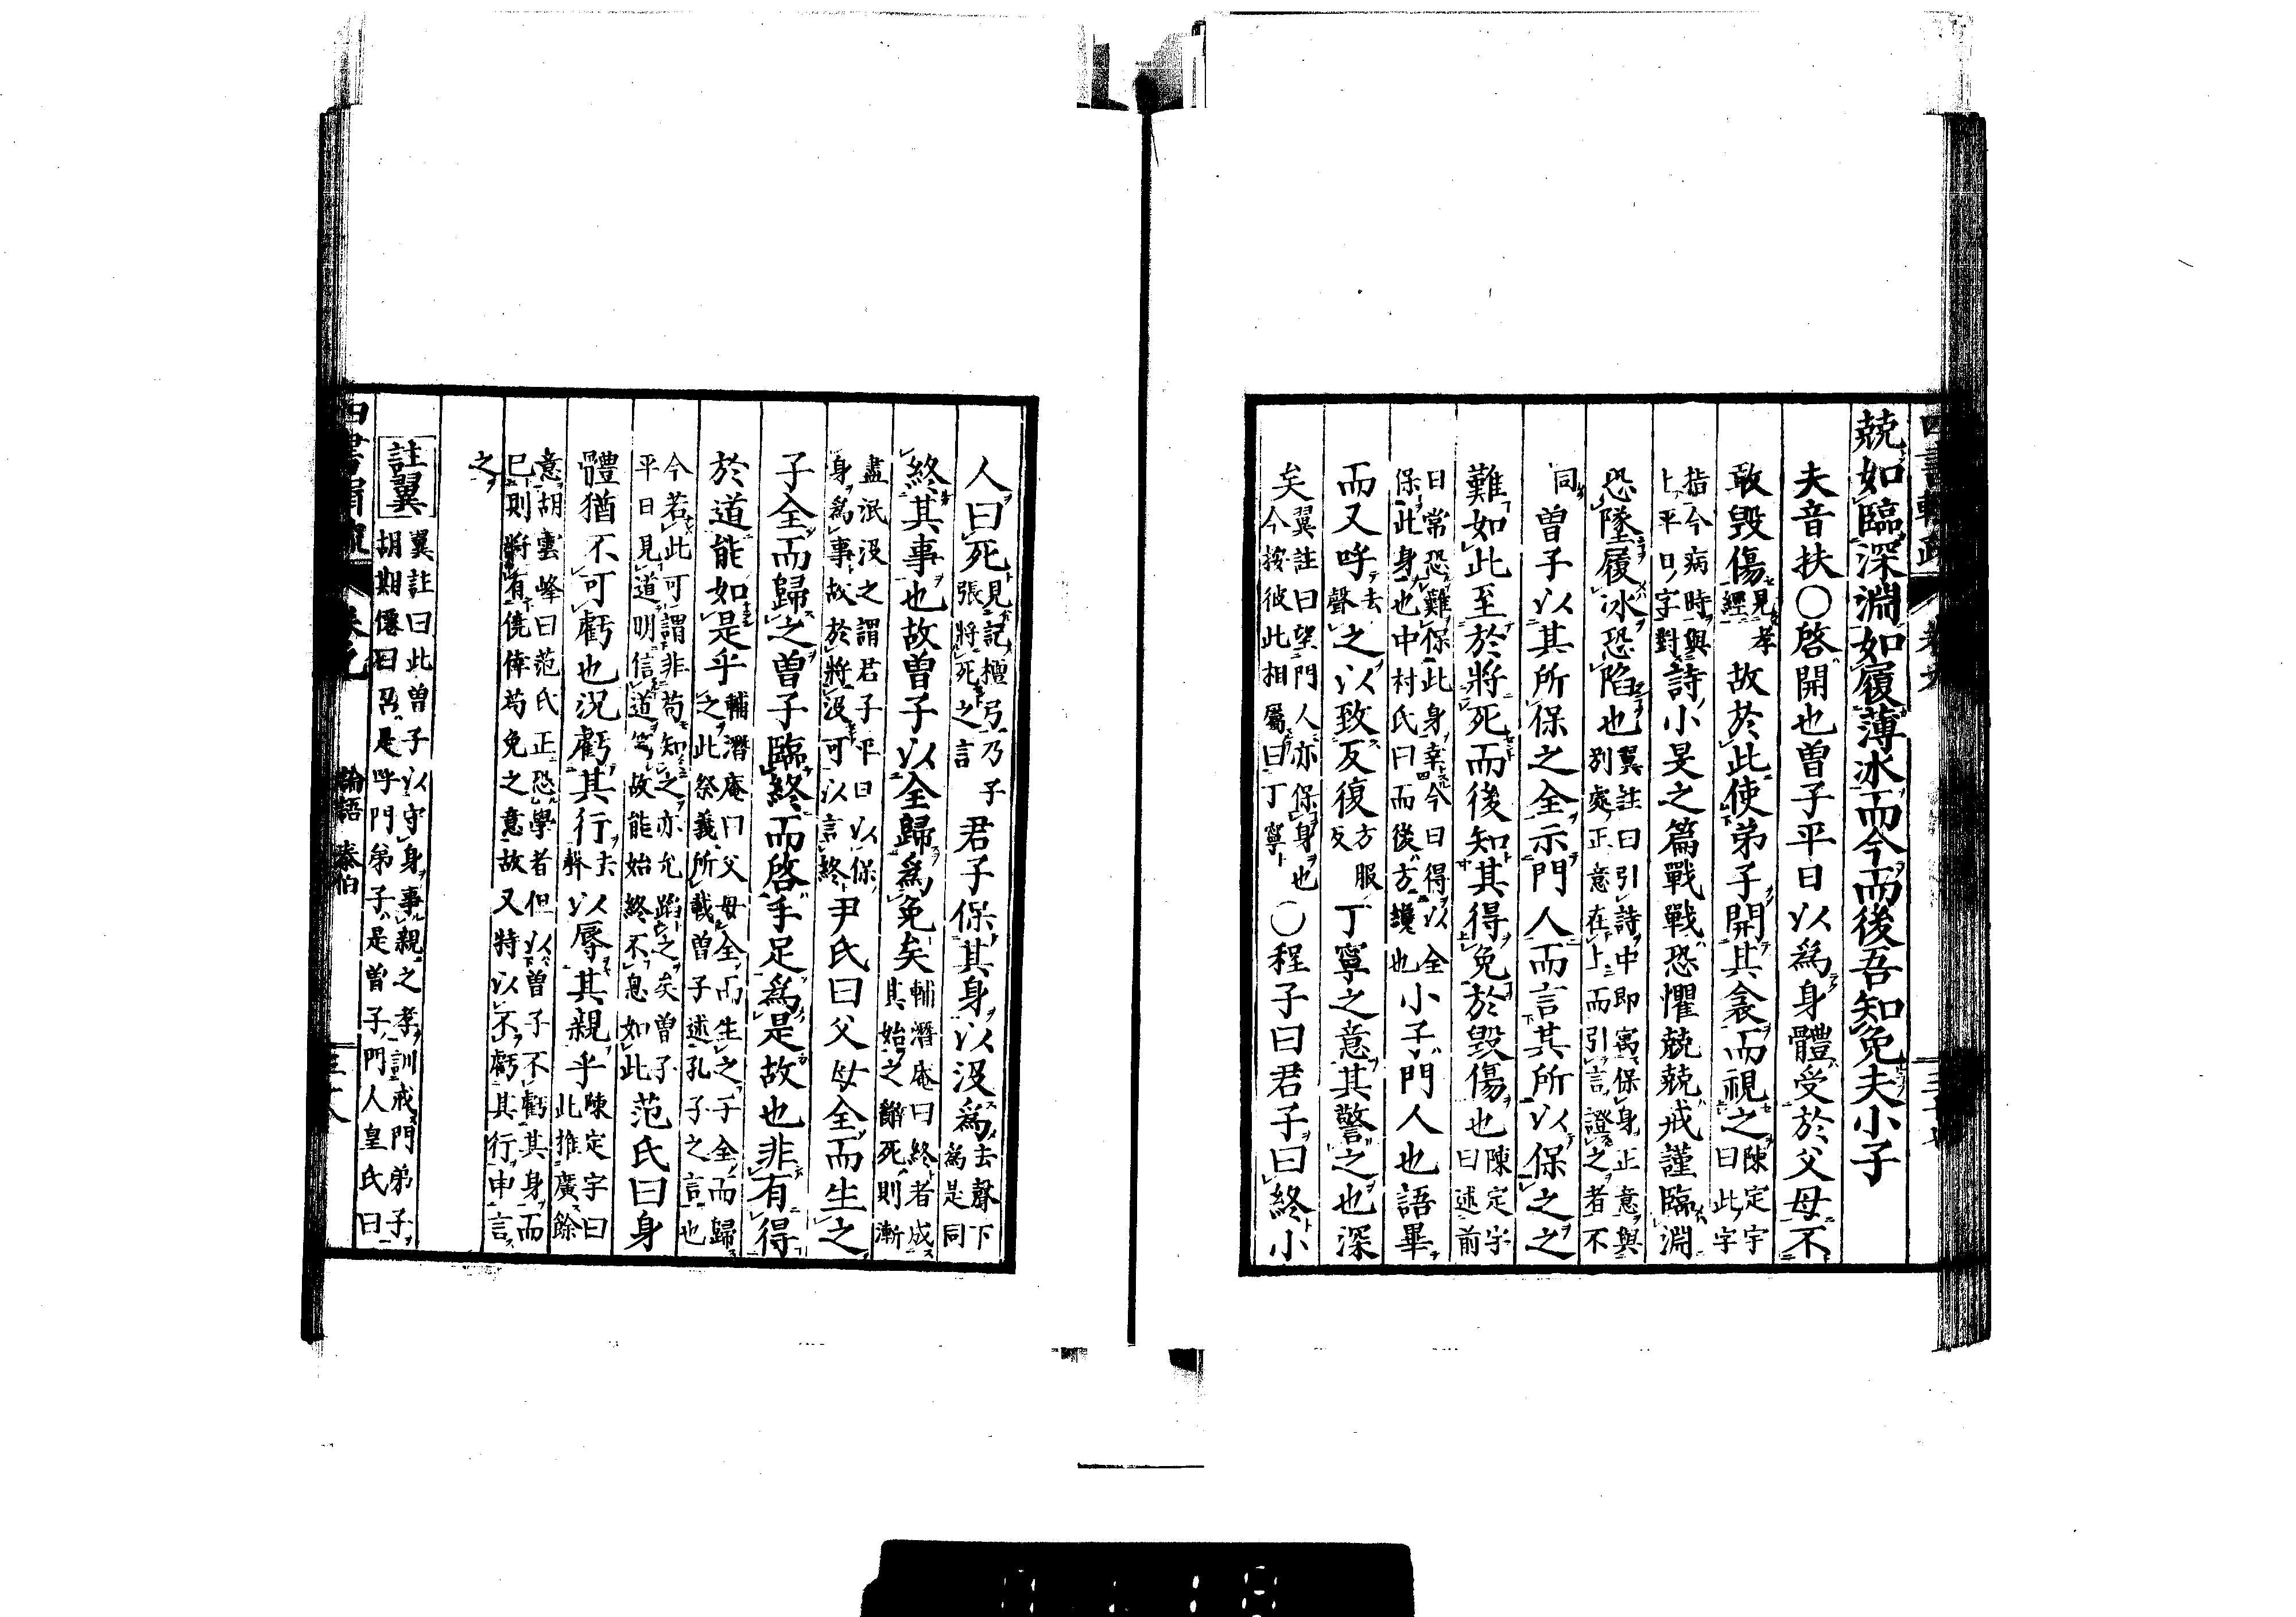 兢如臨深淵如履薄冰而今而後吾知免夫小子
夫音扶〇啓開也曽子平日以爲身體受於父母不
敢毀傷見孝經故於此使弟子開其衾而視之陳定宇曰此字
指今病時與上平日字對詩小旻之篇戰戰恐懼兢兢戒謹臨淵
恐墜履冰恐陷也翼註曰引詩中即寓保身正意與別處正意在上而引言證之者不
同曽子以其所保之全示門人而言其所以保之之
難如此至於將死而後知其得免於毀傷也陳定宇曰述前
日常恐難保此身幸今日得以全保此身也中村氏曰而後方纔也小子門人也語畢
而又呼去聲之以致反復方服反丁寧之意其警之也深
矣翼註曰望門人亦保身也今按彼此相屬曰丁寧〇程子曰君子曰終小
人曰死見記檀弓乃子張將死之言君子保其身以沒爲去聲下爲是同
終其事也故曽子以全歸爲免矣輔潛庵曰終者成其始之辭死則漸
盡泯沒之謂君子平日以保身爲事故於將沒可以言終尹氏曰父母全而生之
子全而歸之曽子臨終而啓手足爲是故也非有得
於道能如是乎輔潛庵曰父母全而生之子全而歸之此祭義所載曽子述孔子之言也
今若此可謂非苟知之亦允蹈之矣曽子平日見道明信道篤故能始終不息如此范氏曰身
體猶不可虧也況虧其行去聲以辱其親乎陳定宇曰此推廣餘
意胡雲峰曰范氏正恐學者但以曽子不虧其身而已則將有僥倖苟免之意故又特以不虧其行申言
之
註翼翼註曰此曽子以守身事親之孝訓戒門弟子胡期僊曰召是呼門弟子是曽子門人皇氏曰
論語 泰伯